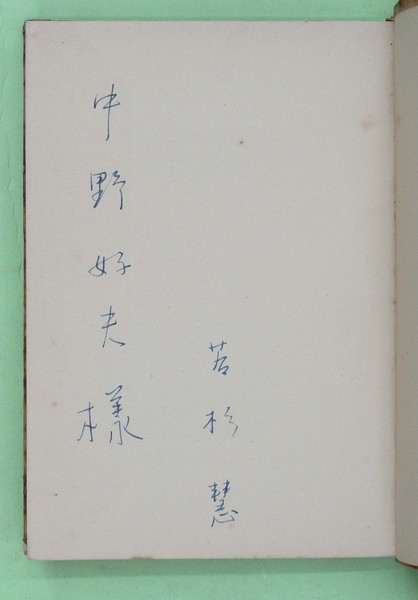 若杉慧
中野好夫樣